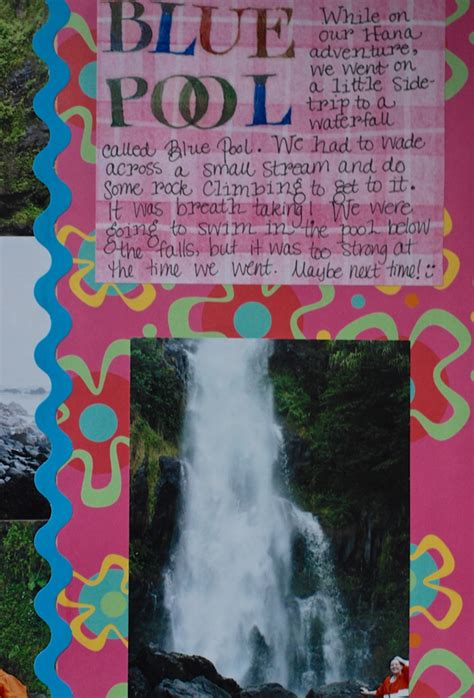 BLUE
POOL
While on
our Hana
adventure,
we went on
a little side-
trip to a
waterfall
called Blue Pool. We had to wade
across a small stream and do
some rock climbing to get to it.
It was breath taking! We were
going to swim in the pool below
the falls, but it was too strong at
the time we went. Maybe next time!